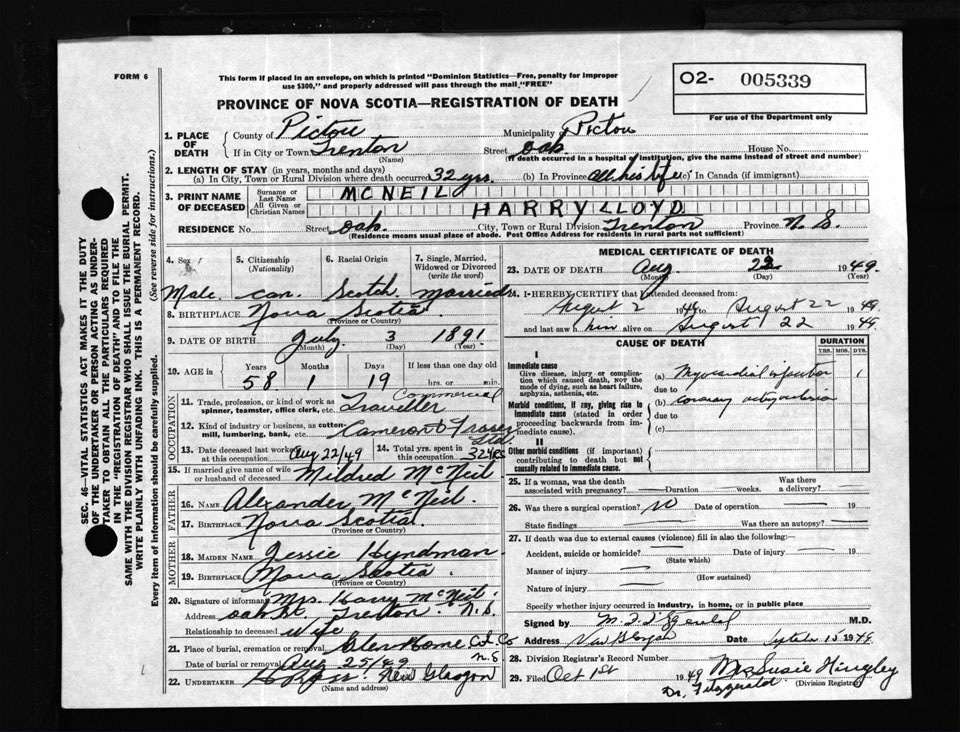 FORM 6
This form if placed in an envelope, on which is printed "Dominion Statistics—Free, penalty for improper
use $300," and properly addressed will pass through the mail "FREE"
O2- 005339
For use of the Department only
PROVINCE OF NOVA SCOTIA—REGISTRATION OF DEATH
1. PLACE OF DEATH
County of Pictou Municipality Pictou
If in City or Town Trenton Street Oak House No.
(Name) (If death occurred in a hospital or institution, give the name instead of street and number)
2. LENGTH OF STAY (in years, months and days)
(a) In City, Town or Rural Division where death occurred 32 yrs. (b) In Province all his life (c) In Canada (if immigrant)
3. PRINT NAME OF DECEASED
Surname or Last Name MCNEIL
All Given or Christian Names HARRY LLOYD
RESIDENCE No. Street Oak. City, Town or Rural Division Trenton Province N. S.
(Residence means usual place of abode. Post Office Address for residents in rural parts not sufficient)
4. Sex
5. Citizenship (Nationality)
6. Racial Origin
7. Single, Married, Widowed or Divorced (write the word)
Male. Can. Scotch Married
8. BIRTHPLACE Nova Scotia
(Province or Country)
9. DATE OF BIRTH July 3 1891
(Month) (Day) (Year)
10. AGE in Years Months Days If less than one day
58 1 19 hrs. or min.
OCCUPATION
11. Trade, profession, or kind of work as spinner, teamster, office clerk, etc. Commercial Traveller
12. Kind of industry or business, as cotton-mill, lumbering, bank, etc. Cameron & Fraser Ltd.
13. Date deceased last worked at this occupation Aug 22/49
14. Total yrs. spent in this occupation 32 yrs
15. If married give name of wife or husband of deceased Mildred McNeil
FATHER
16. NAME Alexander McNeil.
17. BIRTHPLACE Nova Scotia.
(Province or Country)
MOTHER
18. MAIDEN NAME Jessie Hyndman
19. BIRTHPLACE Nova Scotia.
(Province or Country)
20. Signature of informant Mrs. Harry McNeil.
Address Oak St. Trenton. N.S.
Relationship to deceased Wife
21. Place of burial, cremation or removal Glen Home Col Co
N.S
Date of burial or removal Aug 25/49
22. UNDERTAKER Ross New Glasgow
(Name and address)
MEDICAL CERTIFICATE OF DEATH
23. DATE OF DEATH Aug 22 1949.
(Month) (Day) (Year)
24. I HEREBY CERTIFY that I attended deceased from:
August 2 1949 to August 22 1949
and last saw him alive on August 22 1949.
CAUSE OF DEATH
DURATION
YRS. MOS. DYS.
I
Immediate cause
Give disease, injury or complication which caused death, NOT the mode of dying, such as heart failure, asphyxia, asthenia, etc.
(a) Myocardial infarction 1
due to
Morbid conditions, if any, giving rise to immediate cause (stated in order of proceeding backwards from immediate cause).
(b) coronary
due to
(c)
II
Other morbid conditions (if important) contributing to death but not causally related to immediate cause.
25. If a woman, was the death associated with pregnancy? Duration weeks. Was there a delivery?
26. Was there a surgical operation? no Date of operation 19
State findings Was there an autopsy?
27. If death was due to external causes (violence) fill in also the following:-
Accident, suicide or homicide? Date of injury 19
(State which)
Manner of injury
(How sustained)
Nature of injury
Specify whether injury occurred in industry, in home, or in public place
Signed by M.D.
Address New Glasgow Date September 15 1949
28. Division Registrar's Record Number
29. Filed Oct 1st 1949 Mrs Susie Hingley
(Division Registrar)
Dr. Fitzgerald
SEC. 46—VITAL STATISTICS ACT MAKES IT THE DUTY
OF THE UNDERTAKER OR PERSON ACTING AS UNDERTAKER TO OBTAIN ALL THE PARTICULARS REQUIRED
IN THE "REGISTRATION OF DEATH" AND TO FILE THE
SAME WITH THE DIVISION REGISTRAR WHO SHALL ISSUE THE BURIAL PERMIT.
WRITE PLAINLY WITH UNFADING INK. THIS IS A PERMANENT RECORD.
Every item of information should be carefully supplied. (See reverse side for instructions.)